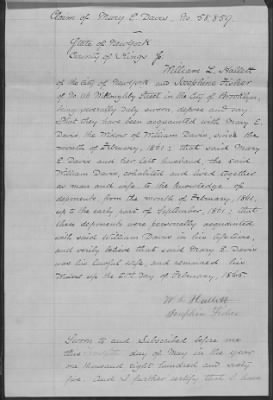 Claim of Mary E. Davis, No. 58,859.
State of New York
County of Kings
William L. Hallett
of the City of New York and Josephine Fisher
of No. Willoughby Street in the City of Brooklyn,
being severally duly sworn depose and say
that they have been acquainted with Mary E.
Davis the widow of William Davis, since the
month of February, 1861; that said Mary
E. Davis and her late husband, the said
William Davis, cohabited and lived together
as man and wife to the knowledge of
deponents from the month of February, 1861,
up to the early part of September, 1861; that
these deponents were personally acquainted
with said William Davis in his lifetime,
and verily believe that said Mary E. Davis
was his lawful wife, and remained his
widow up the day of February, 1865.
W. L. Hallett
Josephine Fisher
Sworn to and Subscribed before me
this day of May in the year
one thousand eight hundred and sixty
five. And I further certify that I have